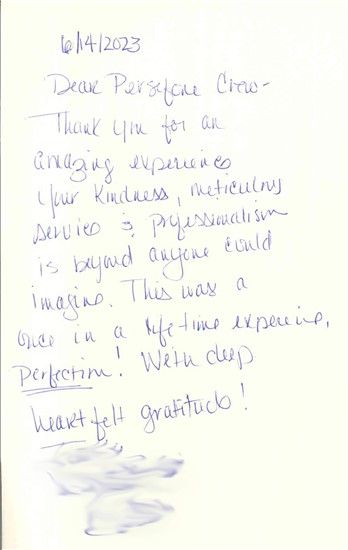 6/14/2023
Dear Persefone Crew-
Thank you for an
amazing experience
your kindness, meticulous
service & professionalism
is beyond anyone could
imagine. This was a
once in a life-time experience,
Perfection! With deep
heartfelt gratitude!